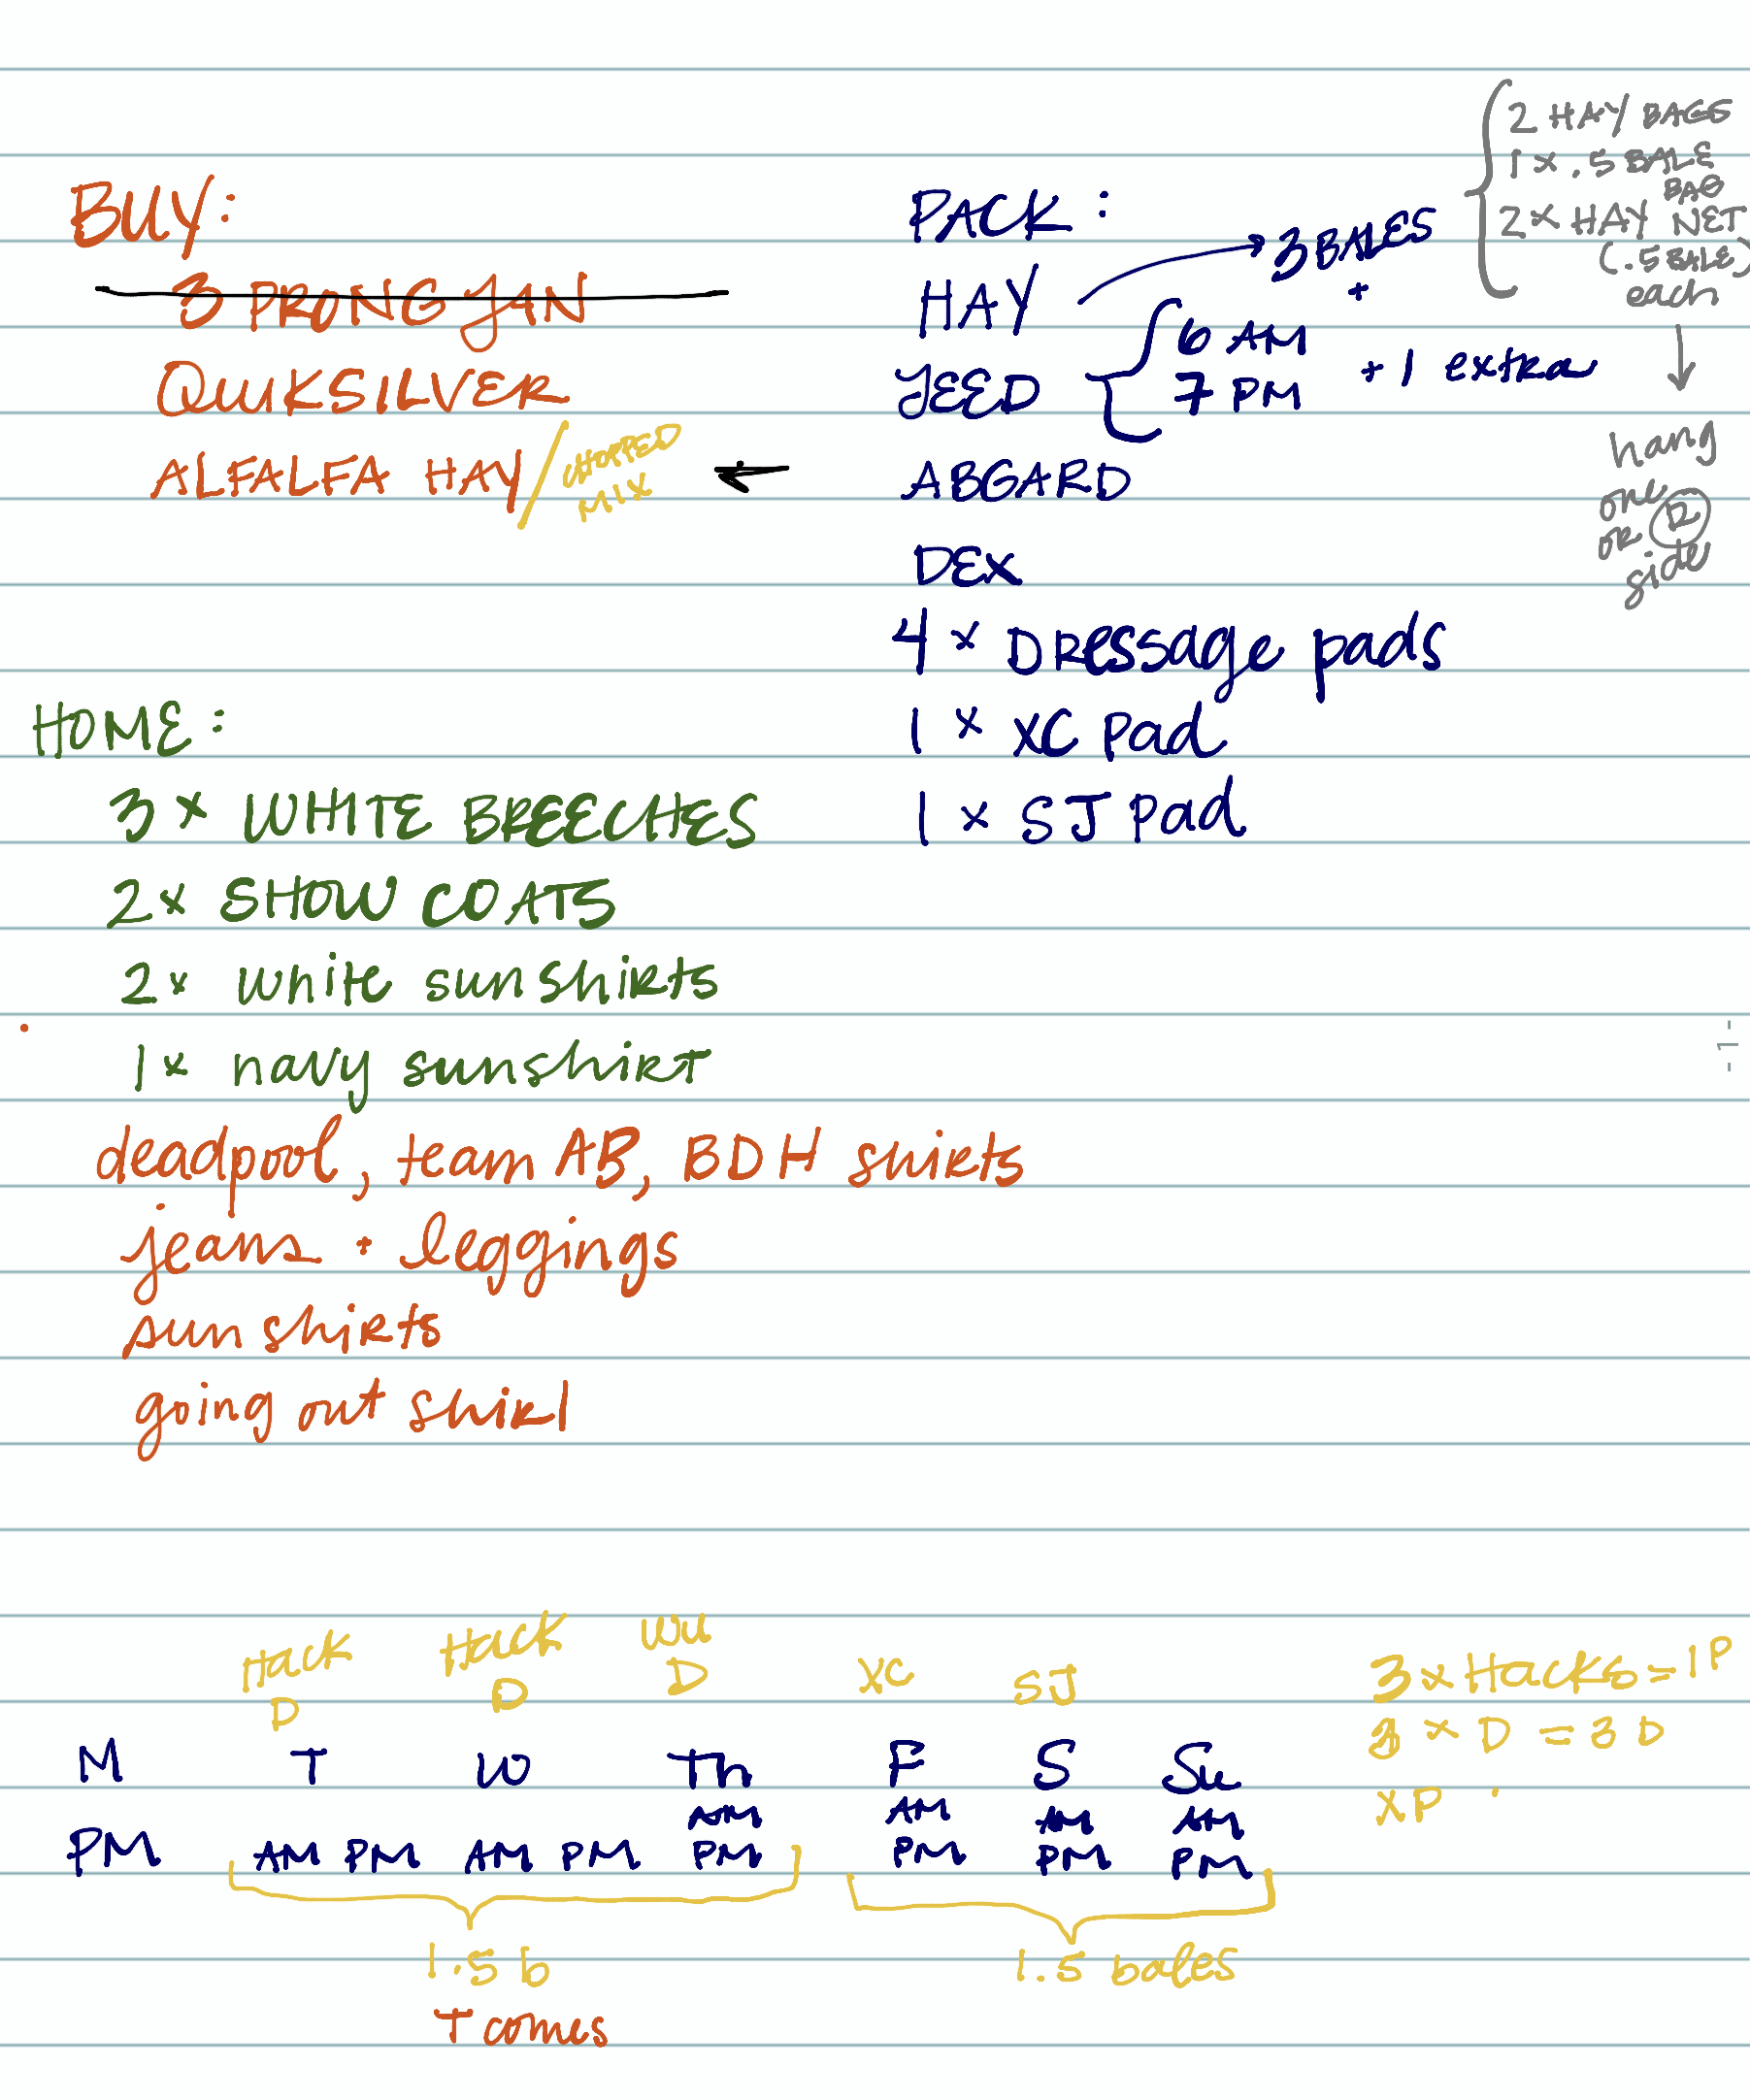 BUY:
3 PRONG FAN
QUIKSILVER
ALFALFA HAY/CHOPPED MIX
PACK:
HAY → 3 BALES +
FEED { 6 AM
7 PM + 1 extra
ABGARD
DEX
4 x Dressage pads
1 x XC pad
1 x SJ pad
2 HAY BAGS
1 x .5 BALE
BAG
2 x HAY NET
(.5 BALE)
each
↓
hang
one
or R
side
HOME:
3 x WHITE BREECHES
2 x SHOW COATS
2 x white sunshirts
1 x navy sunshirt
deadpool, team AB, BDH shirts
jeans + leggings
sun shirts
going out shirt
-1-
Hack D
Hack D
WU D
XC
SJ
3 x Hacks = 1P
3 x D = 3D
XP
M T W Th F S Su
AM AM AM AM
PM AM PM AM PM PM PM PM PM
1.5 b
1.5 bales
T comes